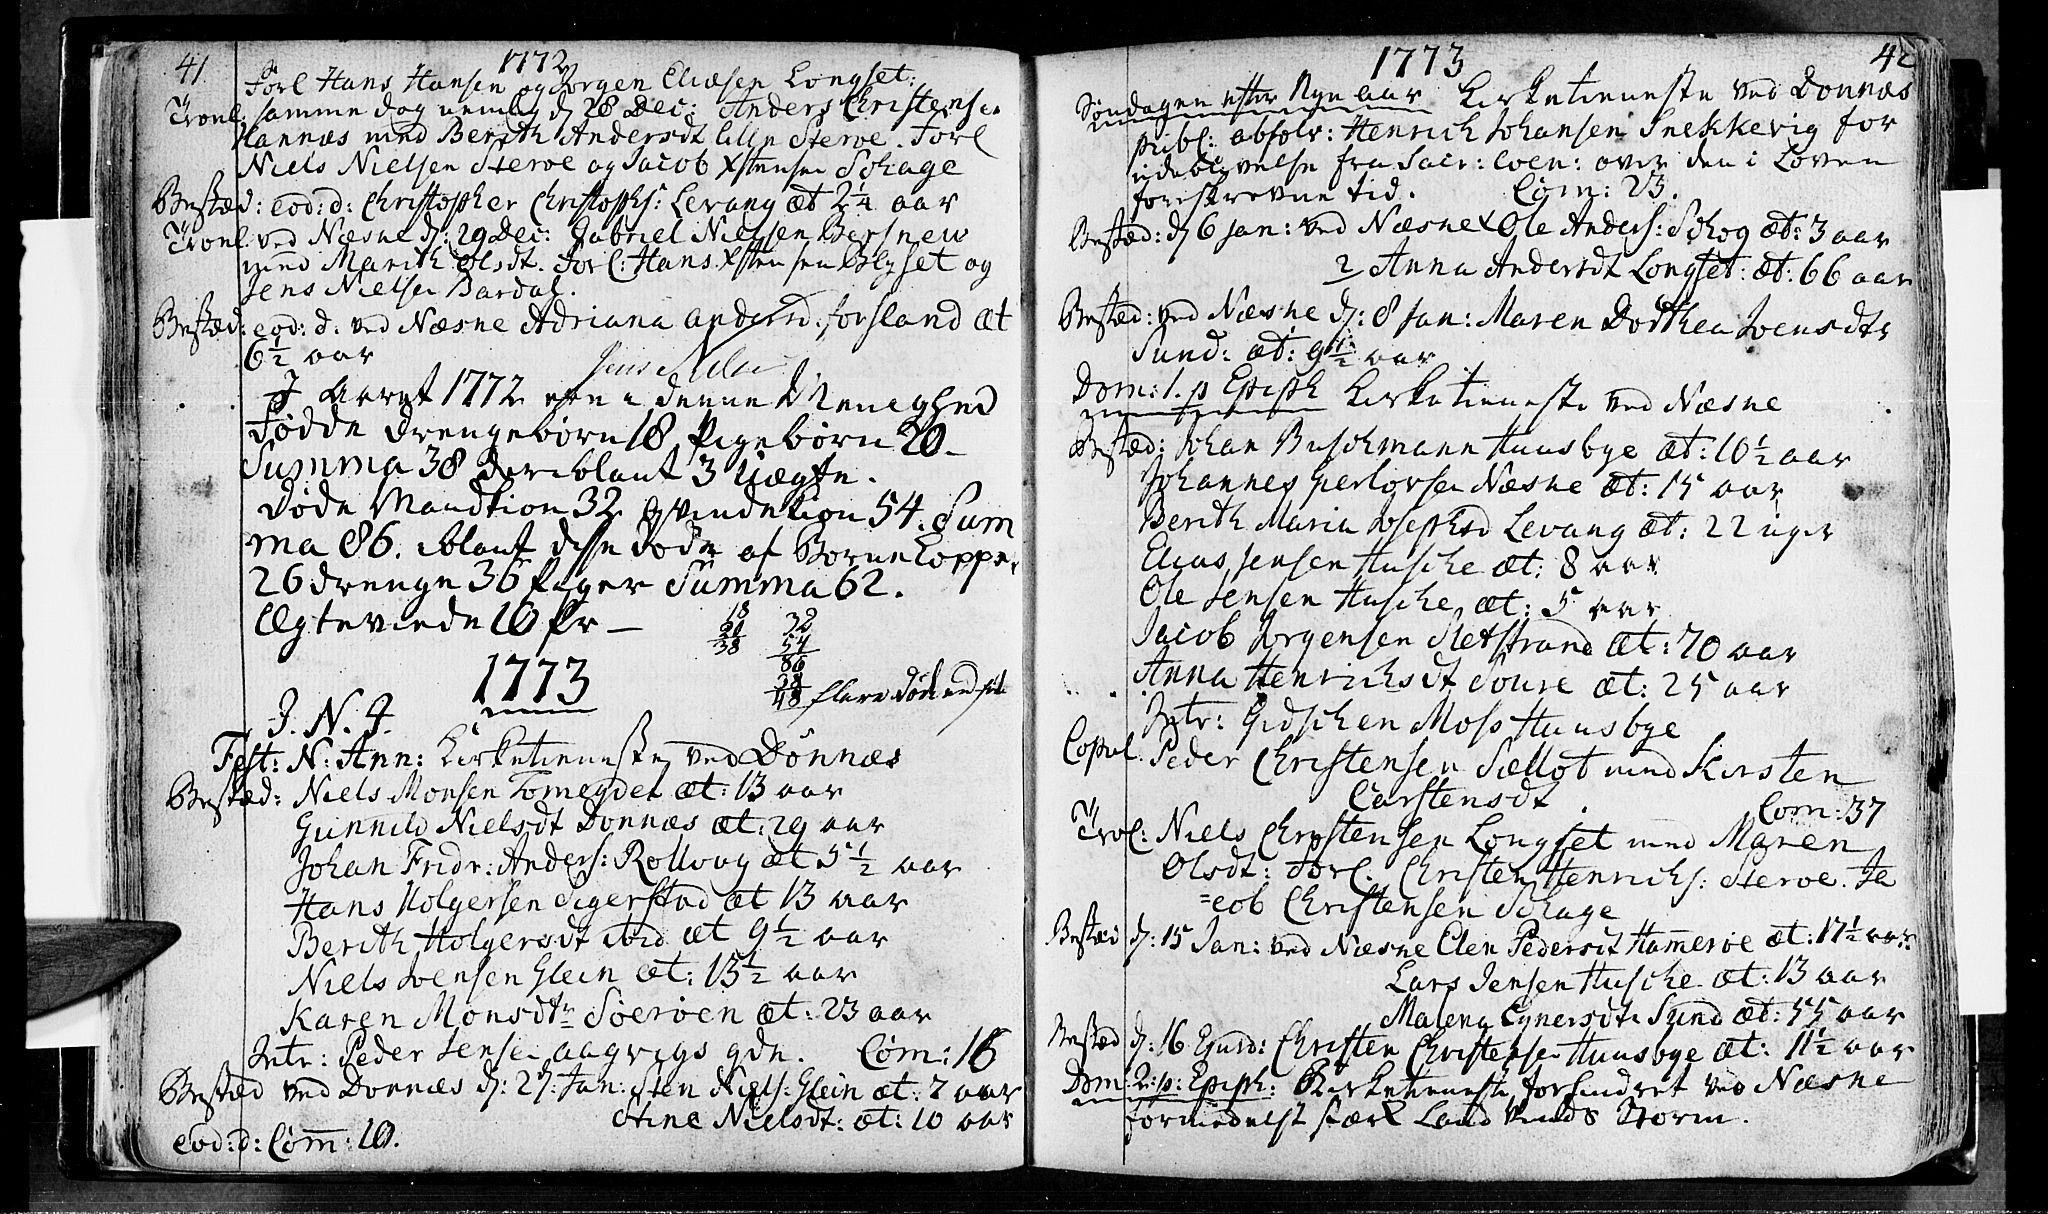 41
1772
Forl Hans Hansen og Jörgen Eliæsen Longset:
Trovl. samme dag nemlig d 28 Dec: Anders Christensen
Hannæs med Berith Andersdt lille Steroe. Forl
Niels Nielsen Steroe og Jacob Xstensen Schage
Bested: eod: d: Christopher Christophs: Levang æt 2¼ aar
Trovl. ved Næsne d: 29 Dec: Gabriel Nielsen
med Marith Olsdt. Forl: Hans Xstensen Blyset og
Jens Nielsen Bardal.
Bested: eod: d: ved Næsne Adriana Andersd: Forsland æt
6½ aar
Jens Nilsen
I Aaret 1772 ere i denne Menighed
Fødde Drengebørn 18 Pigebørn 20 –
Summa 38 deriblant 3 Uægte.
Døde Mandkion 32 Qvindekion 54. Sum
ma 86. iblant disse døde af Børne Copper
26 drenge 36 Piger Summa 62.
Ægteviede 10 Pr –
18
20
38
32
54
86
38
48 flere døde end føde
1773
J. N. J.
Fest: N: Ann: Kirketieneste ved Dönnæs
Bestæd: Niels Monsen Tomegdet æt: 13 aar
Gunnild Nielsdt Dönnæs æt: 29 aar
Johan Fridr: Anders: Rolvaag æt 5½ aar
Hans Holgersen Sigerstad æt 13 aar
Berith Holgersdt ibid æt 9½ aar
Niels Joensen Glein æt: 13½ aar
Karen Monsdtr Söeröen æt: 23 aar
Intr: Peder Jensen Aagvigs qde. Com: 16
Bestæd ved Dönnæs d: 2 Jan: Sten Niels: Glein æt: 7 aar
Anne Nielsdt: æt: 10 aar
eod: d: Com: 10.
1773
42
Søndagen efter Nye aar Kirketieneste ved Dönnæs
publ: absolv: Henrich Johansen Snekkevig for
udeblivelse fra Sacr: Coen: over den i Loven
foreskrevne tid. Com: 23.
Bestæd: d 6 Jan: ved Næsne 1 Ole Anders: Schog æt: 3 aar
2 Anna Andersdt Longset: æt: 66 aar
Bestæd: ved Næsne d: 8 Jan: Maren Dorthea Joensdtr
Sund: æt: 9½ aar
Dom: 1. p Epiph Kirketieneste ved Næsne
Bestæd: Johan Buschmann Huusbye æt: 10½ aar
Johannes Gerlovsen Næsne æt: 15 aar
Berith Maria Josephsd Levang æt: 22 uger
Elias Jensen Husche æt: 8 aar
Ole Jensen Husche æt: 5 aar
Jacob Jørgensen Sletstrand æt: 70 aar
Anna Henrichsdt Soure æt: 25 aar
Intr: Gidschen Moss Huusbye
Copul. Peder Christensen Sællot med Kirsten
Carstensdt. Com: 37
Trol: Niels Christensen Longset med Maren
Olsdt: Forl. Christen Henrichs: Steroe. Ja
=cob Christensen Schage
Bestæd d: 15 Jan: ved Næsne Elen Pedersdt Hameroe æt: 17½ aar
Lars Jensen Husche æt: 13 aar
Malena Eynersdtr Sund æt: 55 aar
Bestæd d: 16 Ejusd: Christen Christensen Huusbye æt: 11½ aar
Dom: 2: p: Epiph: Kirketieneste forhindret ved Næsne
formedelst stærk Land Vinds Storm.